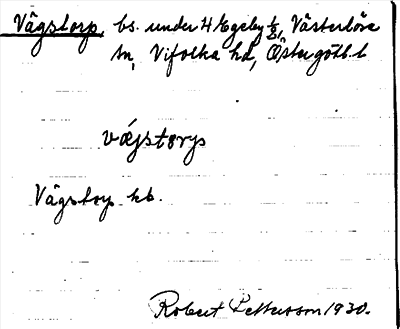 Vågstorp, bs. under 4 Egeby ½, Västerlösa
sn, Vifolka hd, Östergötl. l
vǽjstørp
Vågstorp kb.
Robert Pettersson 1930.